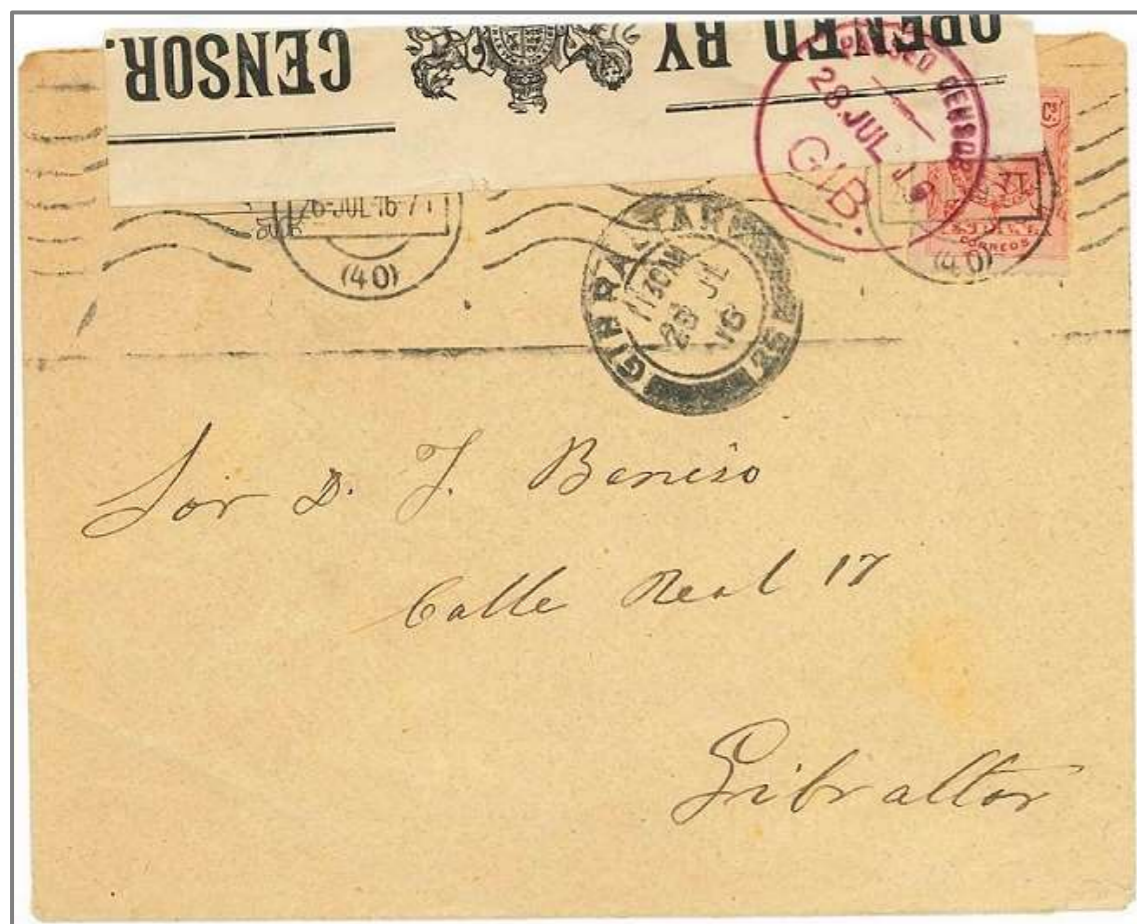 OPENED BY CENSOR.
PASSED CENSOR
28.JUL 16
GIB.
26-JUL 16-7
(40)
(40)
CORREOS
GIBRALTAR
1130AM
28 JL
16
25
Sor D. J. Beniso
Calle Real 17
Gibraltar